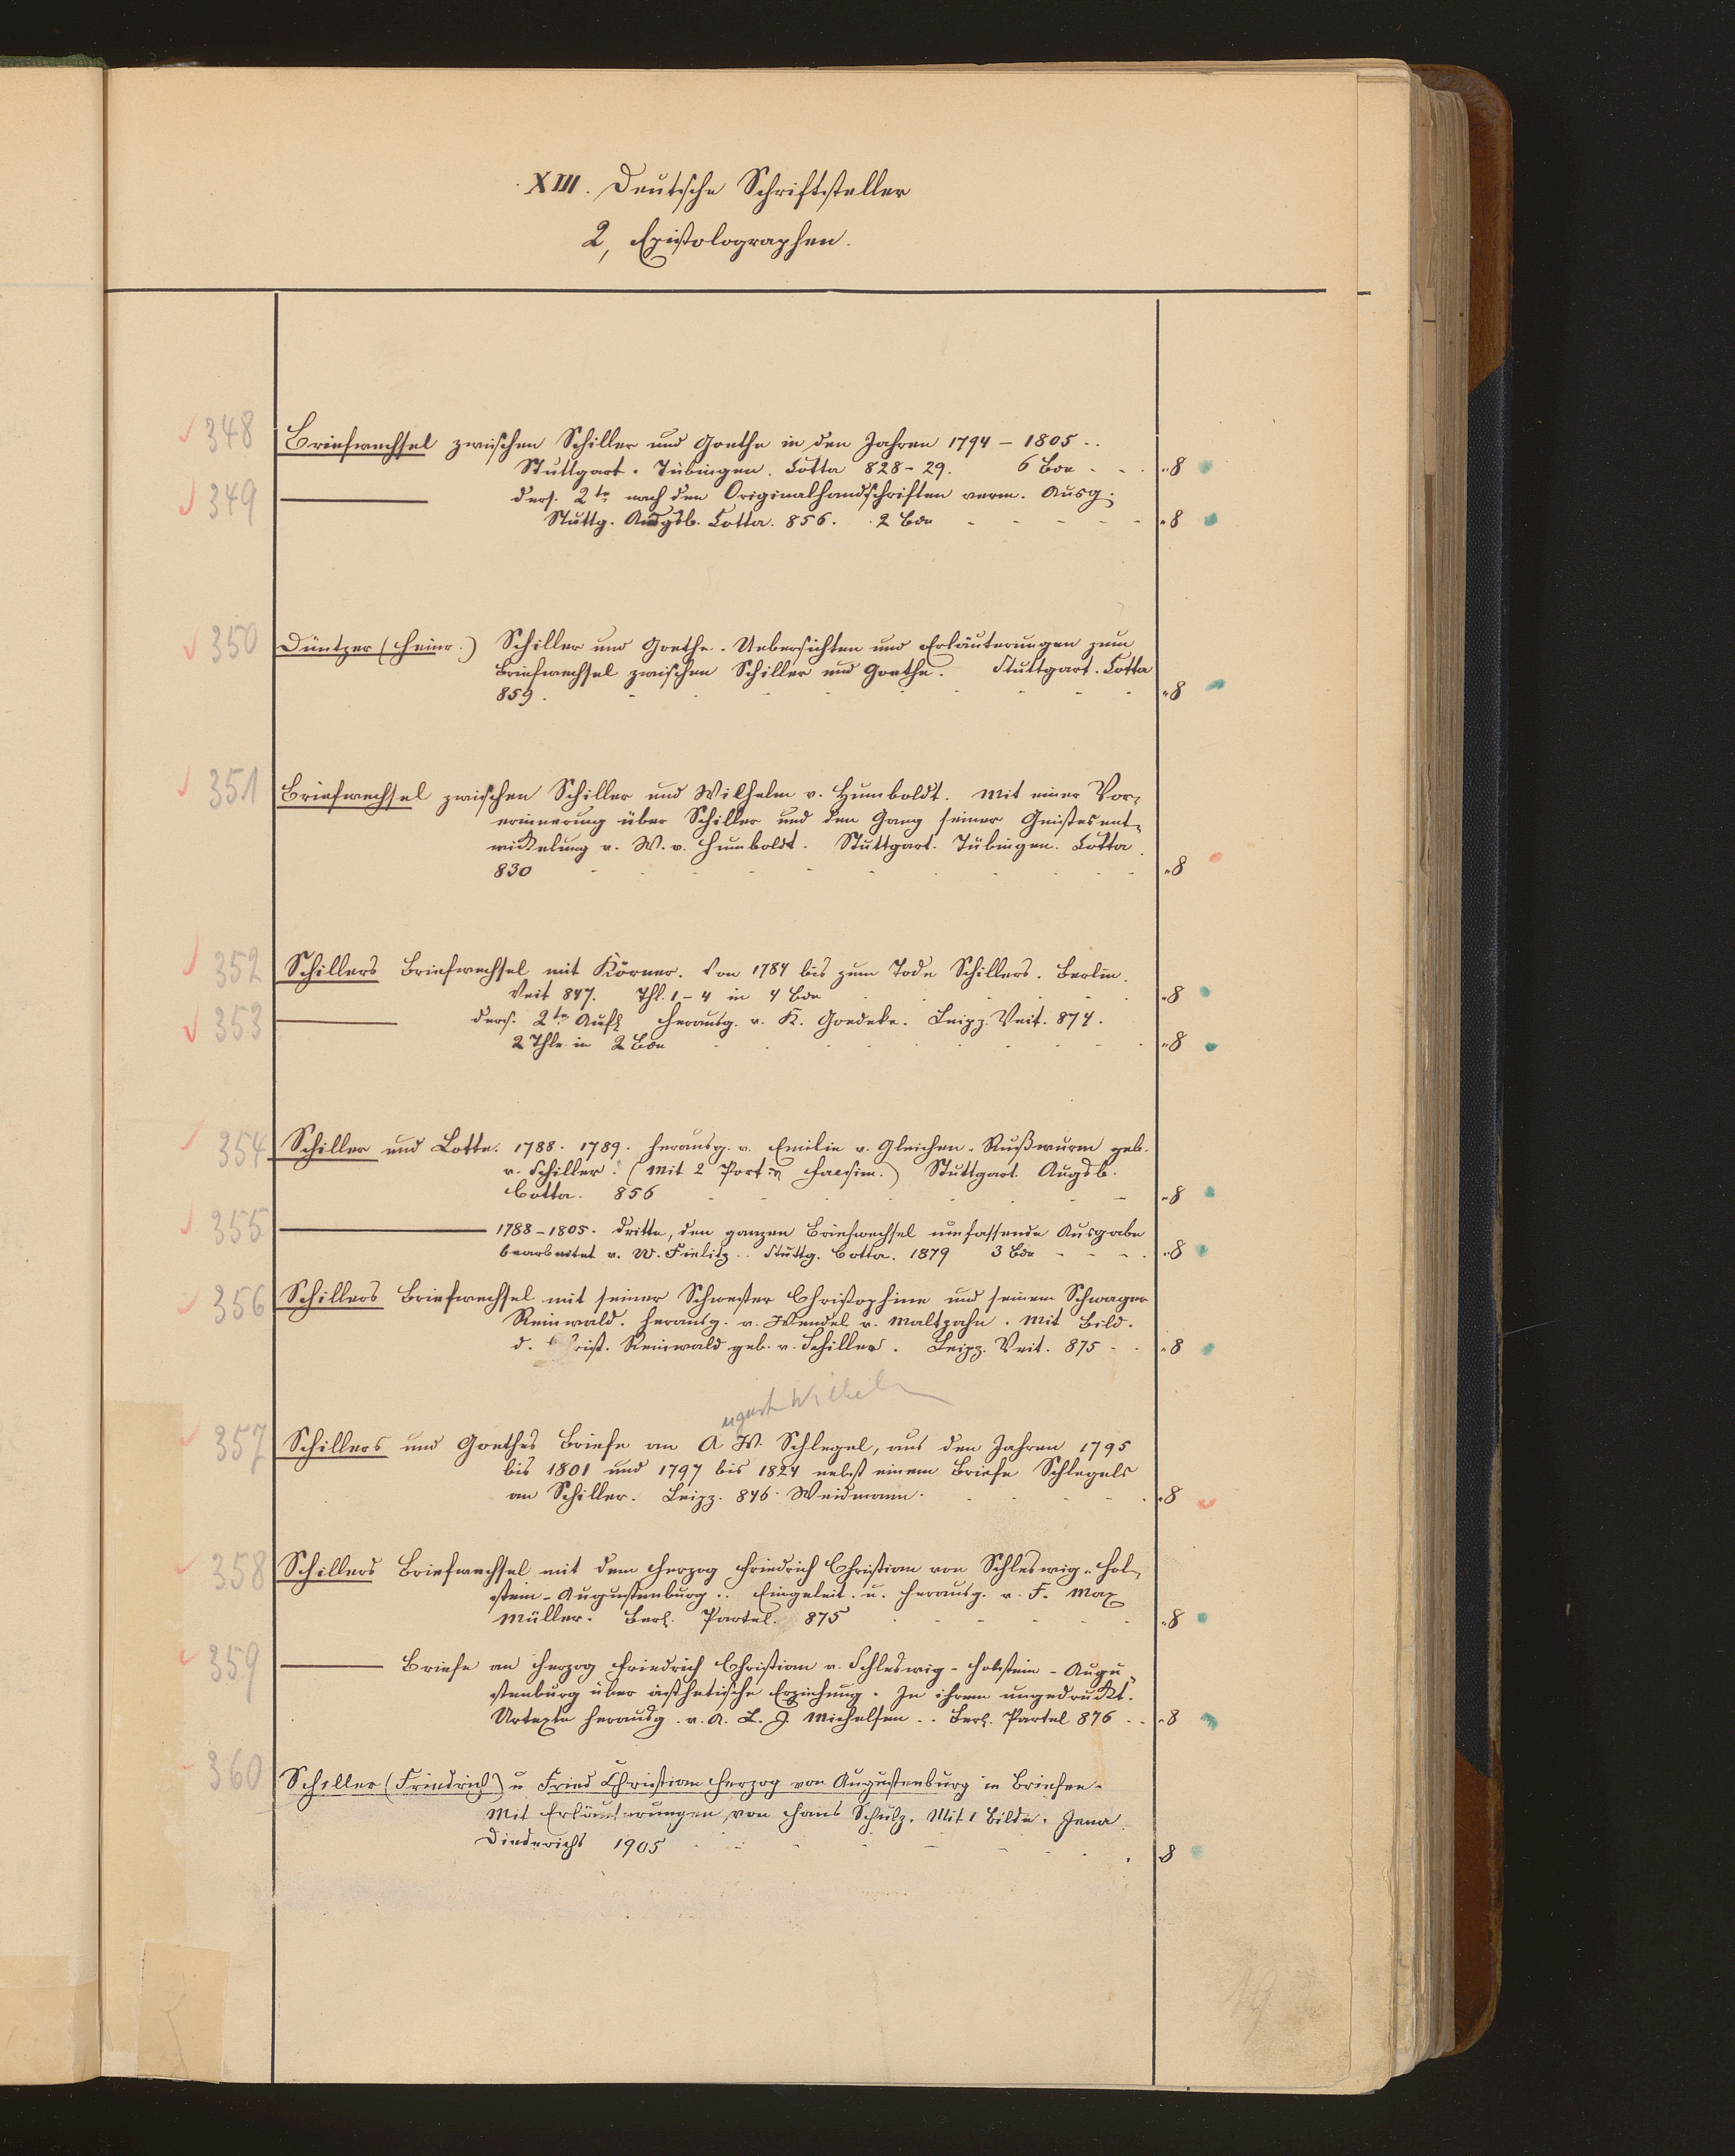 XIII. Deutsche Schriftsteller
2, Epistolographen.
348 Briefwechsel zwischen Schiller und Goethe in den Jahren 1794 – 1805 ..
Stuttgart. Tübingen. Cotta 828 – 29. 6 Bde - - . „ 8
349 ——— ders. 2te nach den Originalhandschriften verm. Ausg.
Stuttg. Augsb. Cotta. 856. 2 Bde - - - - - „ 8
350 Düntzer (Heinr.) Schiller und Goethe. Uebersichten und Erläuterungen zum
Briefwechsel zwischen Schiller und Goethe. Stuttgart. Cotta
859. - - - - - - - - „ 8
351 Briefwechsel zwischen Schiller und Wilhelm v. Humboldt. Mit einer Vor-
erinnerung über Schiller und den Gang seiner Geistesent-
wickelung v. W. v. Humboldt. Stuttgart. Tübingen. Cotta.
830 - - - - - - - - „ 8
352 Schillers Briefwechsel mit Körner. Von 1784 bis zum Tode Schillers. Berlin.
Veit 847. Thl. 1 – 4 in 4 Bde . . . . „ 8
353 ——— ders. 2te Aufl herausg. v. K. Goedeke. Leipz. Veit. 874.
2 Thle in 2 Bde - - - - - - - „ 8
354 Schiller und Lotte. 1788. 1789. herausg. v. Emilie v. Gleichen-Rußwurm geb.
v. Schiller. (Mit 2 Port. u. Facsim.) Stuttgart. Augsb.
Cotta. 856 - - - - - „ 8
355 ——— 1788 – 1805. Dritte, den ganzen Briefwechsel umfassende Ausgabe
bearbeitet v. W. Fielitz.. Stuttg. Cotta. 1879 3 Bde - - - . „ 8
356 Schillers Briefwechsel mit seiner Schwester Christophine und seinem Schwager
Reinwald. herausg. v. Wendel v. Maltzahn. Mit Bild.
d. Christ. Reinwald geb. v. Schiller. Leipz. Veit. 875 - . „ 8
ugust Wilhelm
357 Schillers und Goethes Briefe an A W. Schlegel, aus den Jahren 1795
bis 1801 und 1797 bis 1824 nebst einem Briefe Schlegels
an Schiller. Leipz. 846. Weidmann. - - - - „ 8
358 Schillers Briefwechsel mit dem Herzog Friedrich Christian von Schleswig-Hol-
stein-Augustenburg.. Eingeleit. u. herausg. v. F. Max
Müller. Berl. Paetel. 875 - - - - - „ 8
359 ——— Briefe an Herzog Friedrich Christian v. Schleswig-Holstein-Augu-
stenburg über ästhetische Erziehung. In ihrem ungedruckt.
Urtexte herausg. v. A. L. J. Michelsen.. Berl. Paetel 876 . . „ 8
360 Schiller (Friedrich) u Fried Christian Herzog von Augustenburg in Briefen.
Mit Erläuterungen von Hans Schulz. Mit 1 Bilde. Jena
Diederichs 1905 - - - - - . 8
19